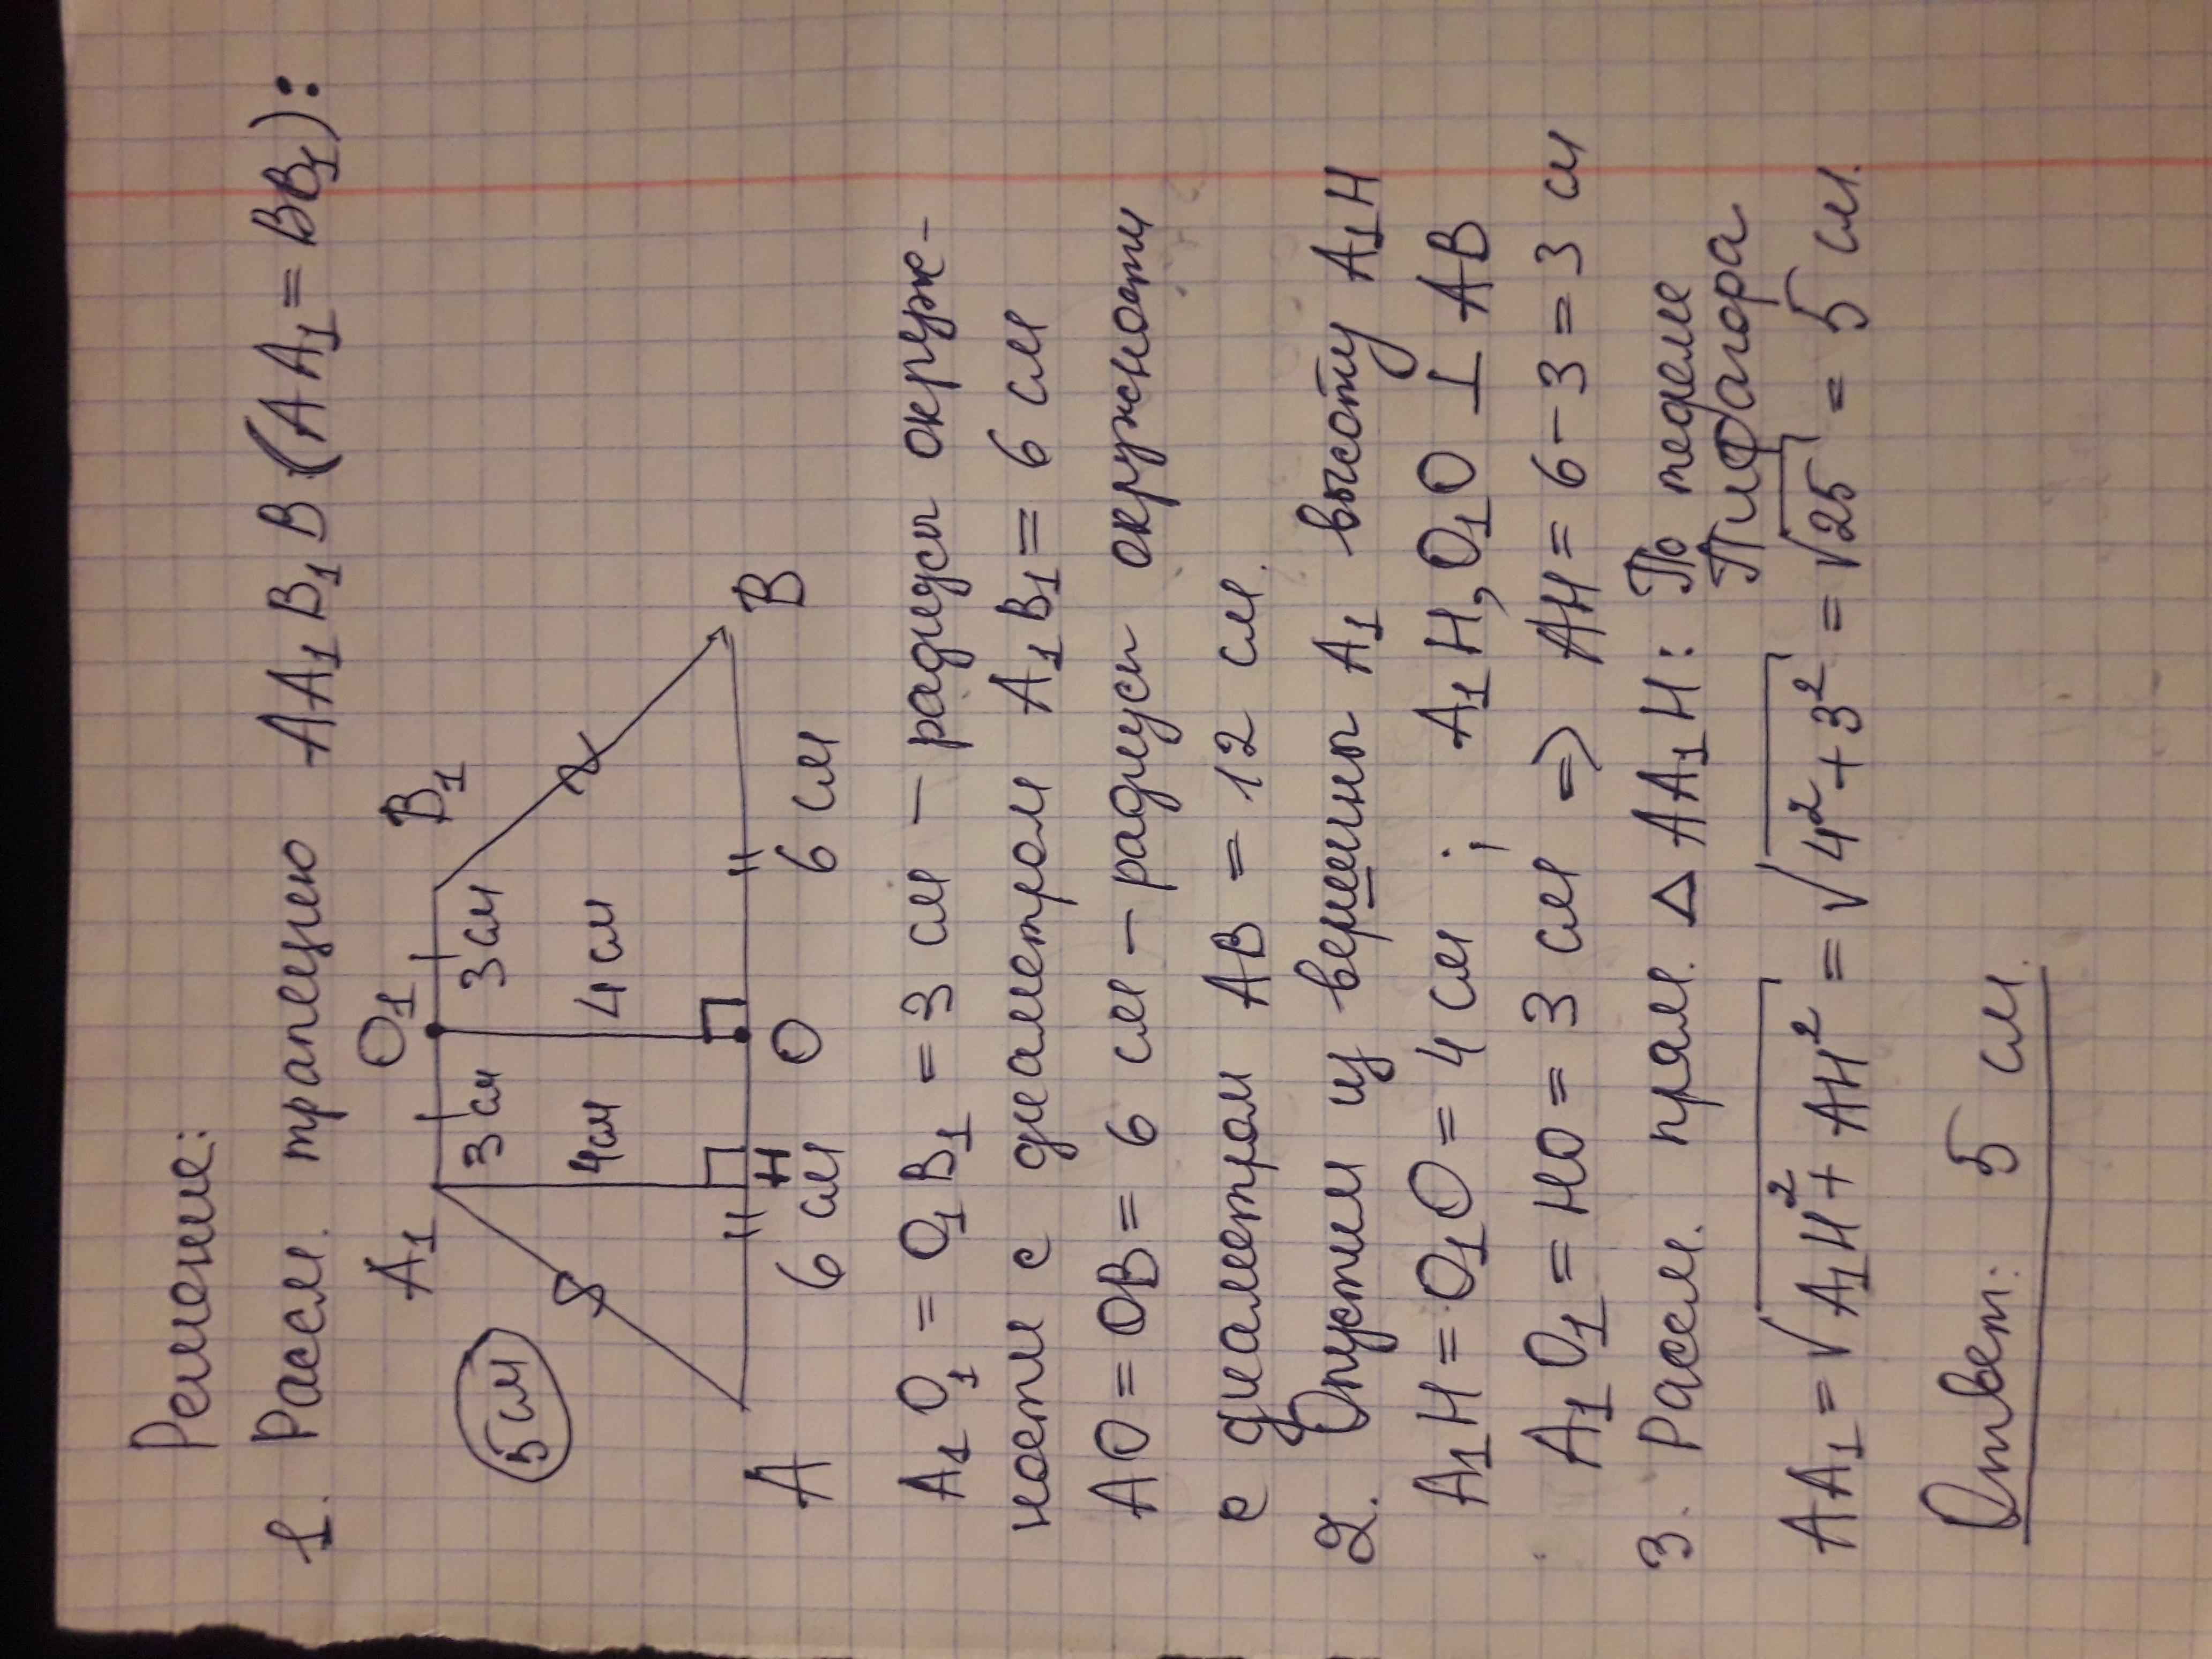 Решение:
1. Рассм. трапецию AA₁B₁B (AA₁ = BB₁):
A₁ O₁ B₁
3 см 3 см
5 см 4 см 4 см
A H O B
6 см 6 см
A₁O₁ = O₁B₁ = 3 см – радиусы окруж-
ности с диаметром A₁B₁ = 6 см
AO = OB = 6 см – радиусы окружности
с диаметром AB = 12 см.
2. Опустим из вершины A₁ высоту A₁H
A₁H = O₁O = 4 см ; A₁H, O₁O ⊥ AB
A₁O₁ = HO = 3 см => AH = 6 - 3 = 3 см
3. Рассм. прям. △ AA₁H: По теореме
Пифагора
AA₁ = √A₁H² + AH² = √4² + 3² = √25 = 5 см.
Ответ: 5 см.